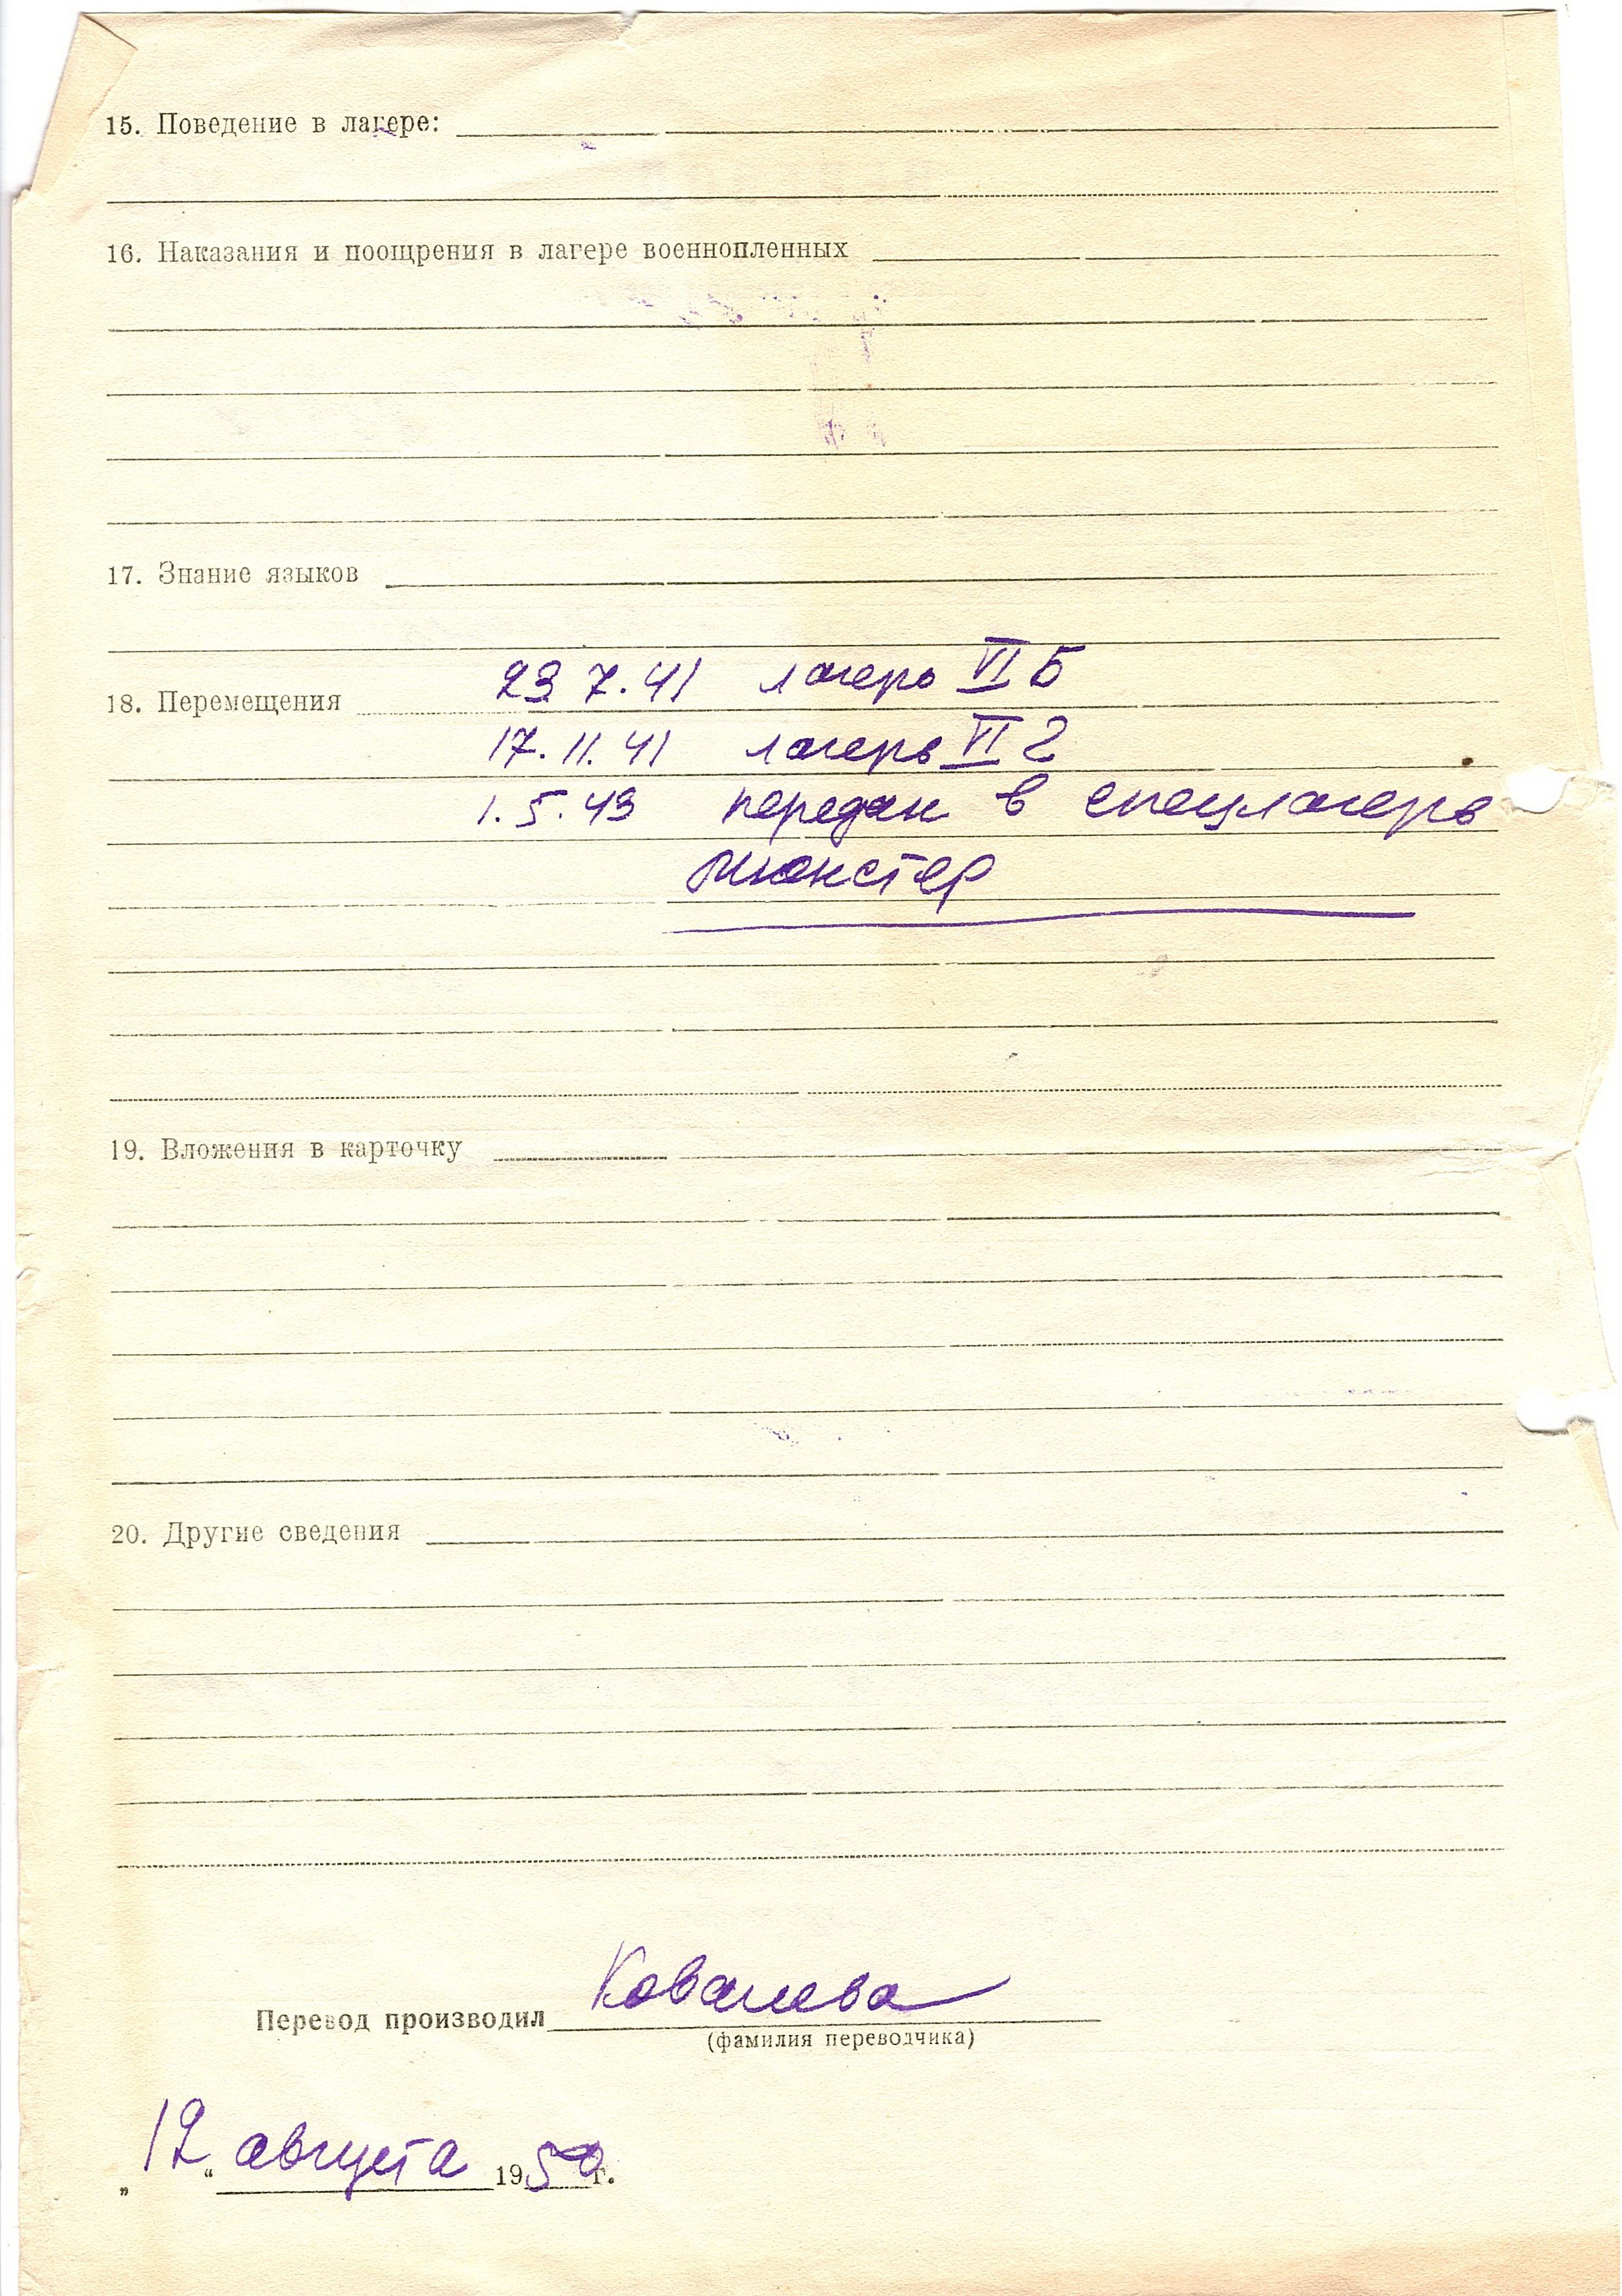 15. Поведение в лагере:
16. Наказания и поощрения в лагере военнопленных
17. Знание языков
23 7.41 лагерь VI Б
18. Перемещения
17.11.41 лагерь VI г
1.5.43 передан в спецлагерь
Мюнстер
19. Вложения в карточку
20. Другие сведения
Перевод производил Ковалева
(фамилия переводчика)
„12“ августа 1950 г.